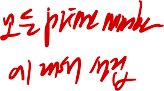 모든 prime number
에 대해 성립